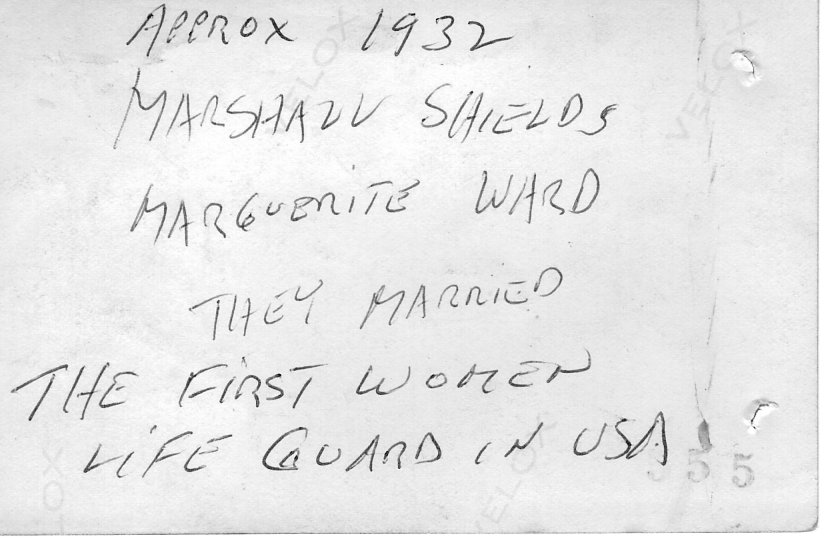 APPROX 1932
MARSHALL SHIELDS
MARGUERITE WARD
THEY MARRIED
THE FIRST WOMEN
LIFE GUARD IN USA
55
VELOX
VELOX
VELOX